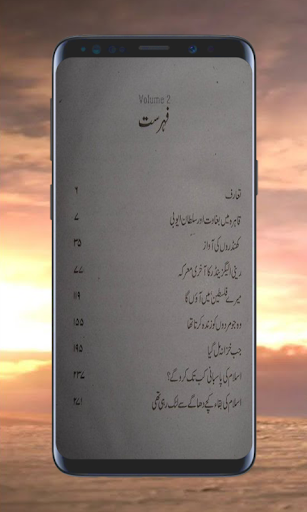 Volume 2
فہرست
تعارف ۹
قاہرہ میں بغاوت اور سلطان ایوبی ۷
کھنڈروں کی آواز ۳۵
رینی الیگزینڈر کا آخری معرکہ ۷۷
میرے فلسطین! میں آؤں گا ۱۱۹
وہ جو مردوں کو زندہ کرتا تھا ۱۵۵
جب خزانہ مل گیا ۱۹۵
اسلام کی پاسبانی کب تک کرو گے؟ ۲۳۷
اسلام کی بقاء کچے دھاگے سے لٹک رہی تھی ۲۷۱